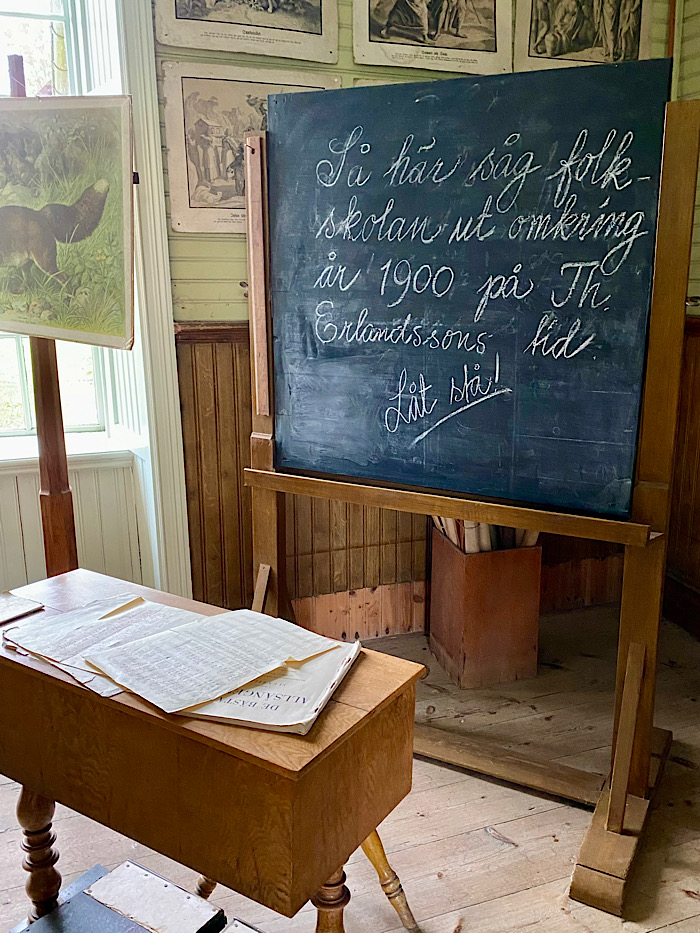 Så här såg folk-
skolan ut omkring
år 1900 på Th.
Erlandssons tid.
Låt stå!
DE BÄSTA
ALLSÅNG